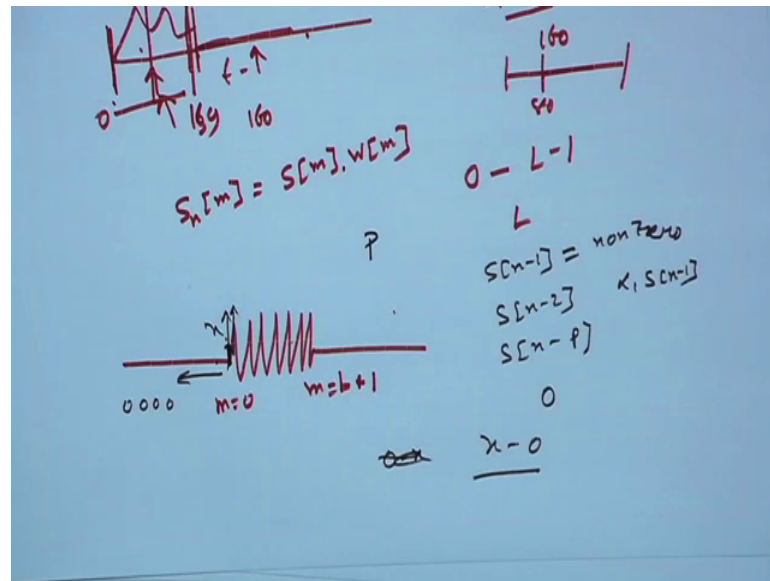 0 159 160
160
80
Sₙ[m] = S[m].W[m]
0 - L-1
L
P
S[n-1] = non zero
S[n-2] α₁ S[n-1]
S[n-P]
x
0 0 0 0 m=0 m=L+1
0
x-0